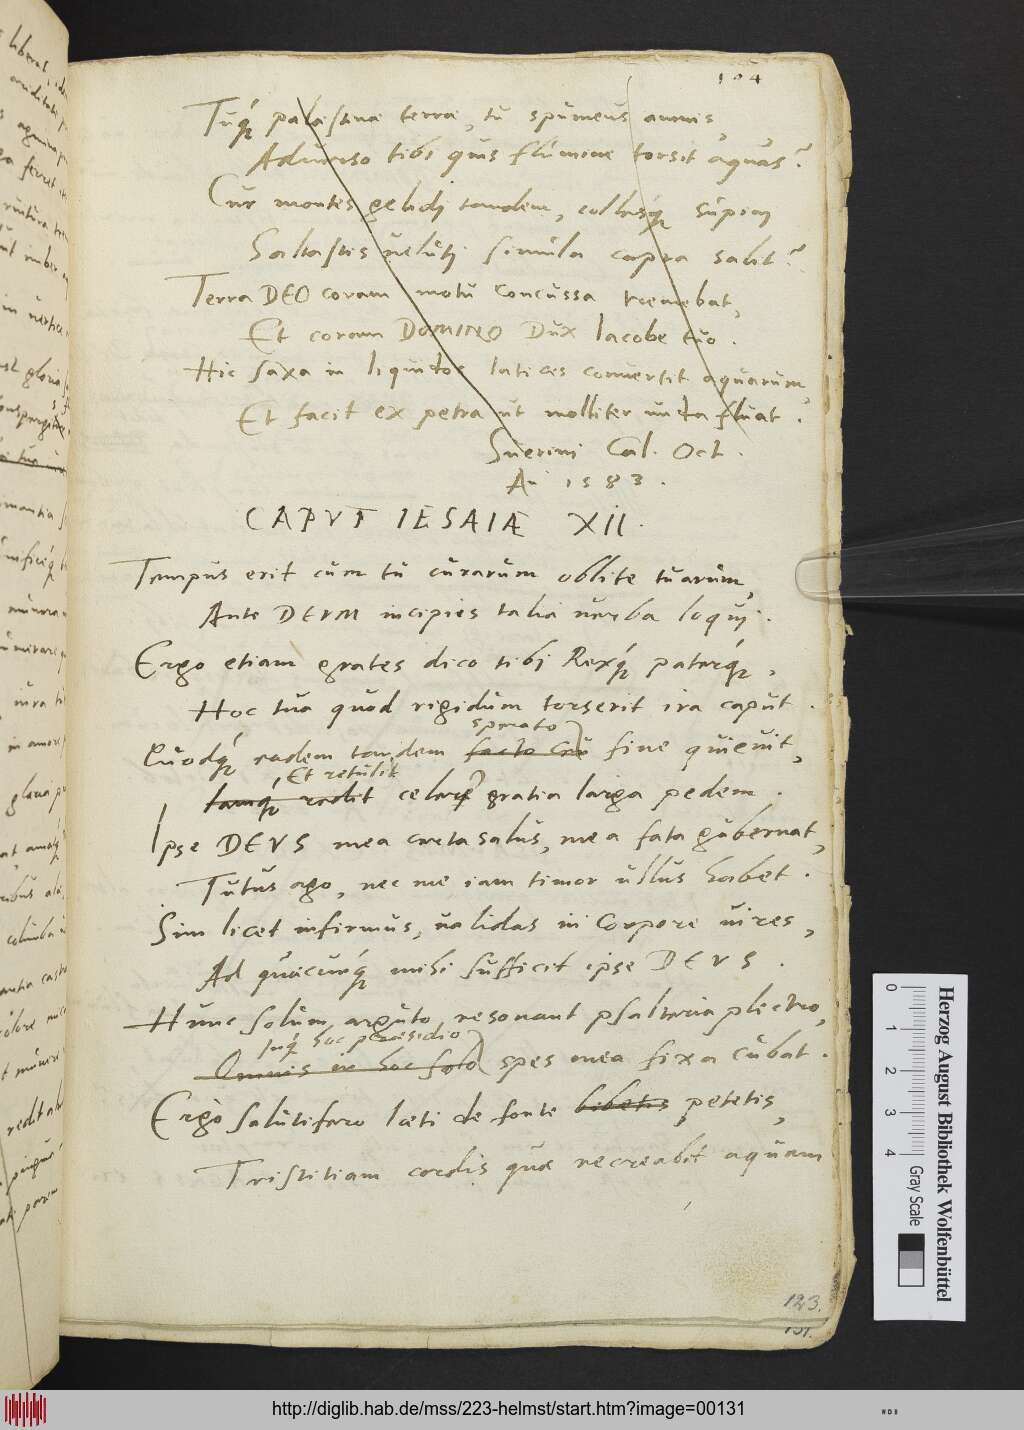 104
Tuq́ue palæstinæ terræ, tu spumeus amnis,
Aduerso tibi quis flumine torsit aquas?
Cur montes gelidj tandem, collesq́ue supini
Saltastis uelutj simula capra salit?
Terra DEO coram motu concussa tremebat,
Et coram DOMINO Dux Iacobe tuo.
Hic saxa in liquidos latices conuertit aquarum,
Et facit ex petra ut molliter unda fluat.
Suerini Cal. Oct.
A͠ 1583.
CAPVT IESAIÆ XII.
Tempus erit cum tu curarum oblite tuarum,
Ante DEVM incipies talia uerba loquj.
Ergo etiam grates dico tibj Rexq́ue paterq́ue,
Hoc tua quod rigidum torserit ira caput.
sperato
Quodq́ue eadem tandem facto ceu fine quieuit,
Et retulit
tamq́ue redit celerem gratia larga pedem.
Ipse DEVS mea certa salus, mea fata gubernat,
Tutus ago, nec me iam timor ullus habet.
Sim licet infirmus, ualidas in corpore uires,
Ad quæcunq́ue mihi sufficit ipse DEVS.
Hunc solum arguto resonant psalteria plectro,
Inq́ue hoc præsidio
Omnis in hoc solo spes mea fixa cubat.
Ergo salutifero læti de fonte bibetis petetis,
Tristitiam cordis quæ recreabit aquam
123.
131.
http://diglib.hab.de/mss/223-helmst/start.htm?image=00131
Herzog August Bibliothek Wolfenbüttel
0 1 2 3 4 Gray Scale